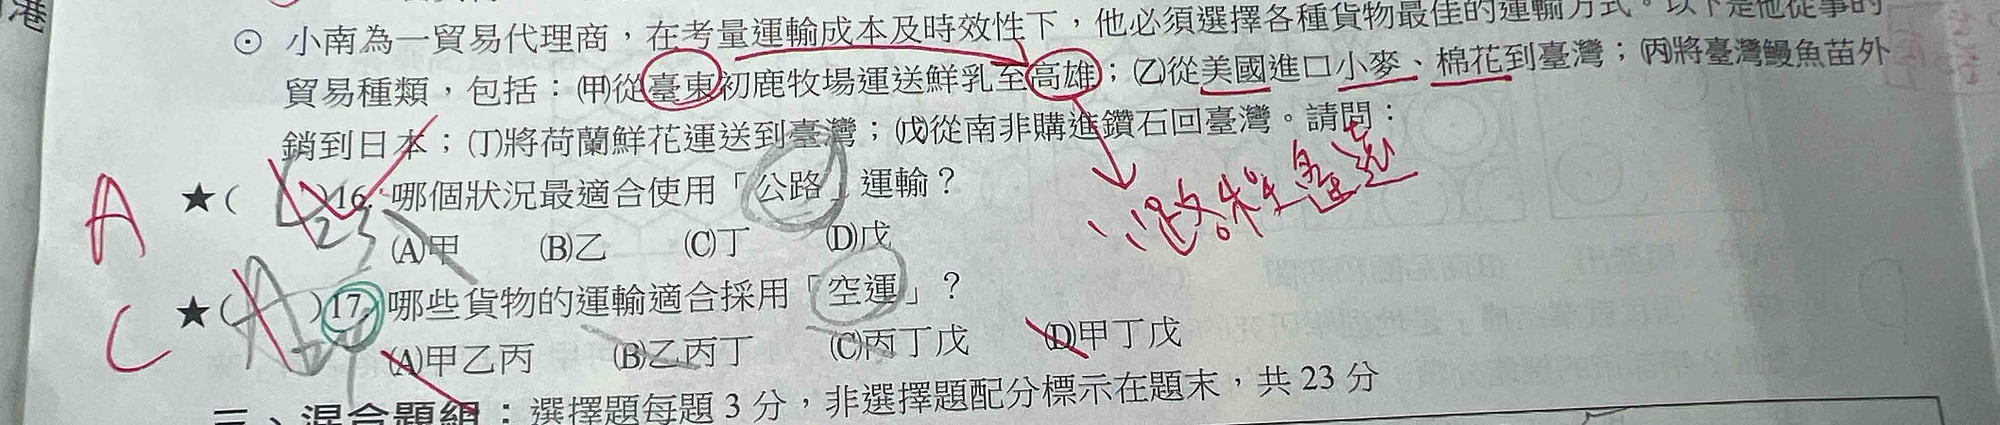 港
⊙ 小南為一貿易代理商，在考量運輸成本及時效性下，他必須選擇各種貨物最佳的運輸方式。以下是他從事的
貿易種類，包括：(甲)從臺東初鹿牧場運送鮮乳至高雄；(乙)從美國進口小麥、棉花到臺灣；(丙)將臺灣鰻魚苗外
銷到日本；(丁)將荷蘭鮮花運送到臺灣；(戊)從南非購進鑽石回臺灣。請問：
A ★( )16. 哪個狀況最適合使用「公路」運輸？
(A)甲 (B)乙 (C)丁 (D)戊
C ★( A )17. 哪些貨物的運輸適合採用「空運」？
(A)甲乙丙 (B)乙丙丁 (C)丙丁戊 (D)甲丁戊
三、混合題組：選擇題每題 3 分，非選擇題配分標示在題末，共 23 分